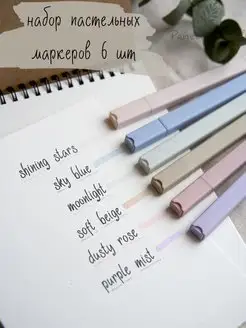 набор пастельных
маркеров 6 шт
shining stars
sky blue
moonlight
soft beige
dusty rose
purple mist